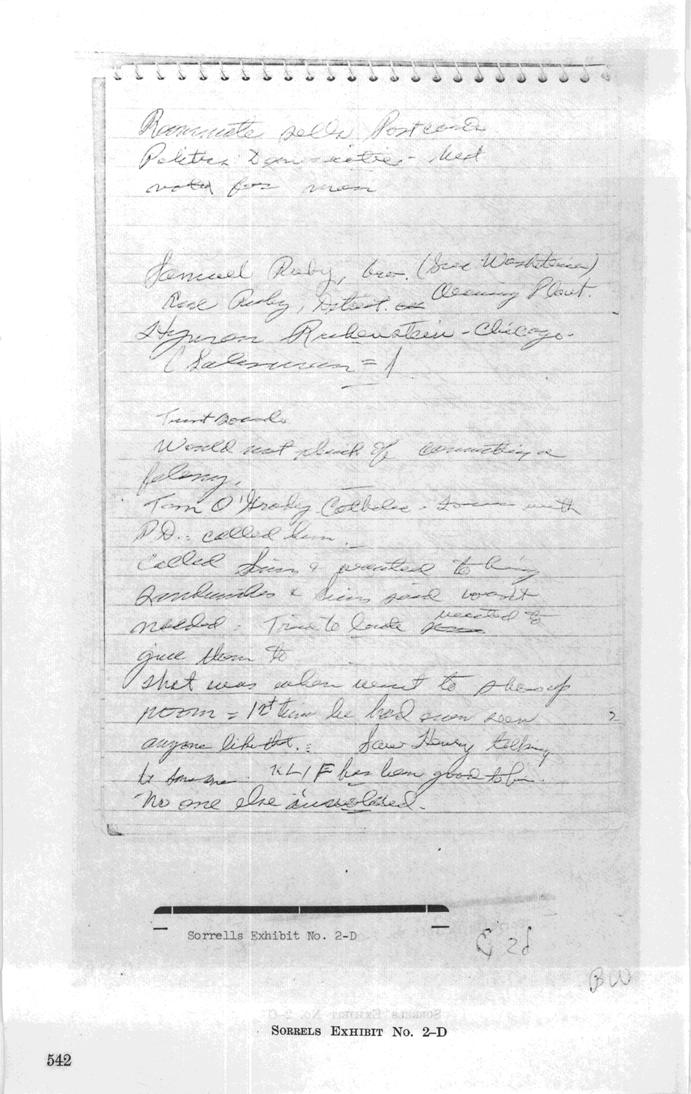 Roommate sells Postcards
Politics Democratic -
voted for men
Samuel Ruby, bro.
Earl Ruby, Detroit. Cleaning Plant.
Hyman Rubenstein - Chicago -
(Salesman =
Would not think of committing a
felony.
Tom O'Grady Catholic - with
P.D. : called him.
Called Sims & wanted to bring
Sandwiches & Sims said wasn't
needed. Tried to locate wanted to
give them to
that was when went to showup
room = 1st time he had ever seen
anyone like that. : Saw Henry talking
to someone. KLIF has been good to him.
No one else involved.
Sorrells Exhibit No. 2-D
2d
BW
SORRELS EXHIBIT NO. 2–D
542